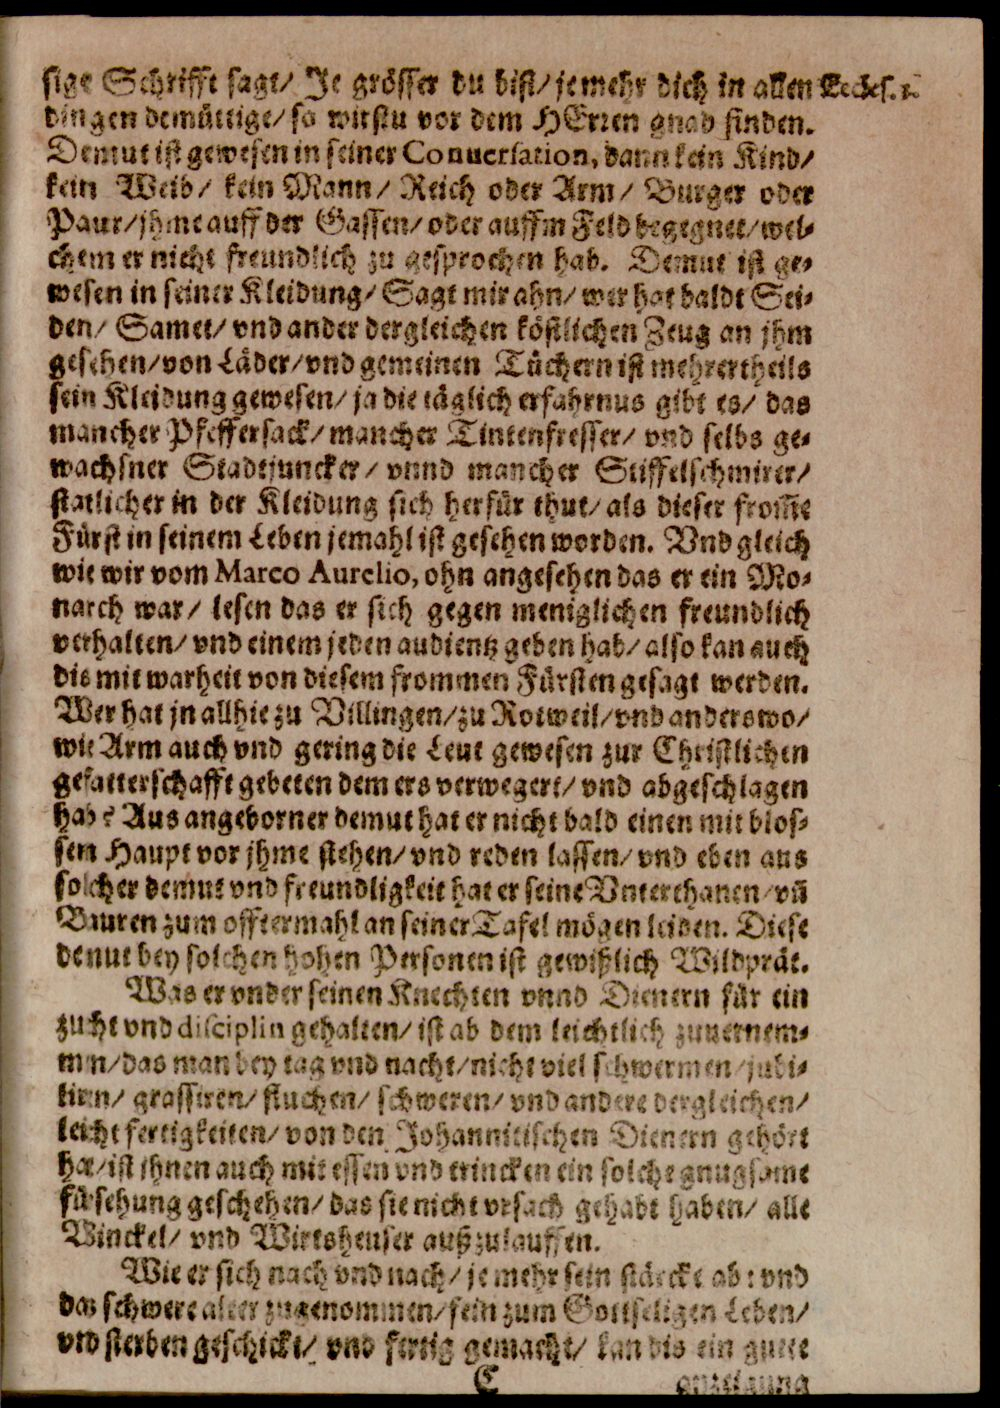 sige Schrifft sagt/ Je grösser du bist/ je mehr dich in allen
dingen demüttige/ so wirstu vor dem HErren gnad finden.
Demut ist gewesen in seiner Conuersation, dann kein Kind/
kein Weib/ kein Mann/ Reich oder Arm/ Burger oder
Paur/ jhme auff der Gassen/ oder auffm Feld begegnet/ wel⸗
chem er nicht freundlich zu gesprochen hab. Demut ist ge⸗
wesen in seiner Kleidung/ Sagt mir ahn/ wer hat baldt Sei⸗
den/ Samet/ vnd ander dergleichen köstlichen Zeug an jhm
gesehen/ von Läder/ vnd gemeinen Tüchern ist mehrertheils
sein Kleidung gewesen/ ja die täglich erfahrnus gibt es/ das
mancher Pfeffersack/ mancher Tintenfresser/ vnd selbs ge⸗
wachsner Stadtjuncker/ vnnd mancher Stiffelschmirer/
statlicher in der Kleidung sich herfür thut/ als dieser from̃e
Fürst in seinem Leben jemahl ist gesehen worden. Vnd gleich
wie wir vom Marco Aurelio, ohn angesehen das er ein Mo⸗
narch war/ lesen das er sich gegen meniglichen freundlich
verhalten/ vnd einem jeden audientz geben hab/ also kan auch
dis mit warheit von diesem frommen Fürsten gesagt werden.
Wer hat jn allhie zu Villingen/ zu Rotweil/ vnd anderswo/
wie Arm auch vnd gering die Leut gewesen zur Christlichen
gefatterschafft gebeten dem ers verwegert/ vnd abgeschlagen
habe? Aus angeborner demut hat er nicht bald einen mit blos⸗
sen Haupt vor jhme stehen/ vnd reden lassen/ vnd eben aus
solcher demut vnd freundligkeit hat er seine Vnterthanen/ vñ
Bauren zum offtermahl an seiner Tafel mögen leiden. Diese
demut bey solchen hohen Personen ist gewißlich Wildprät.
Was er vnder seinen Knechten vnnd Dienern für ein
zucht vnd disciplin gehalten/ ist ab dem leichtlich zuuernem⸗
men/ das man bey tag vnd nacht/ nicht viel schwermen/ jubi⸗
liren/ grassiren/ fluchen/ schweren/ vnd andere dergleichen/
leichtfertigkeiten/ von den Johannitischen Dienern gehört
hat/ ist jhnen auch mit essen vnd trincken ein solche gnugsame
fürsehung geschehen/ das sie nicht vrsach gehabt haben/ alle
Winckel/ vnd Wirtsheuser außzulauffen.
Wie er sich nach vnd nach/ je mehr sein stärcke ab: vnd
das schwere alter zugenommen/ fein zum Gottseligen Leben/
vnd sterben geschickt/ vnd fertig gemacht/ kan dis ein gutte
C anzeigung